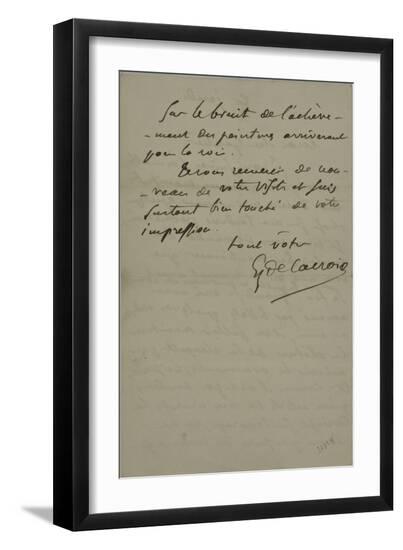 Sur le bruit de l'achève-
-ment des peintures arriveront
pour la voir.
Je vous remercie de nou-
-veau de votre visite et suis
surtout bien touché de votre
impression.
tout à vous
Eug Delacroix